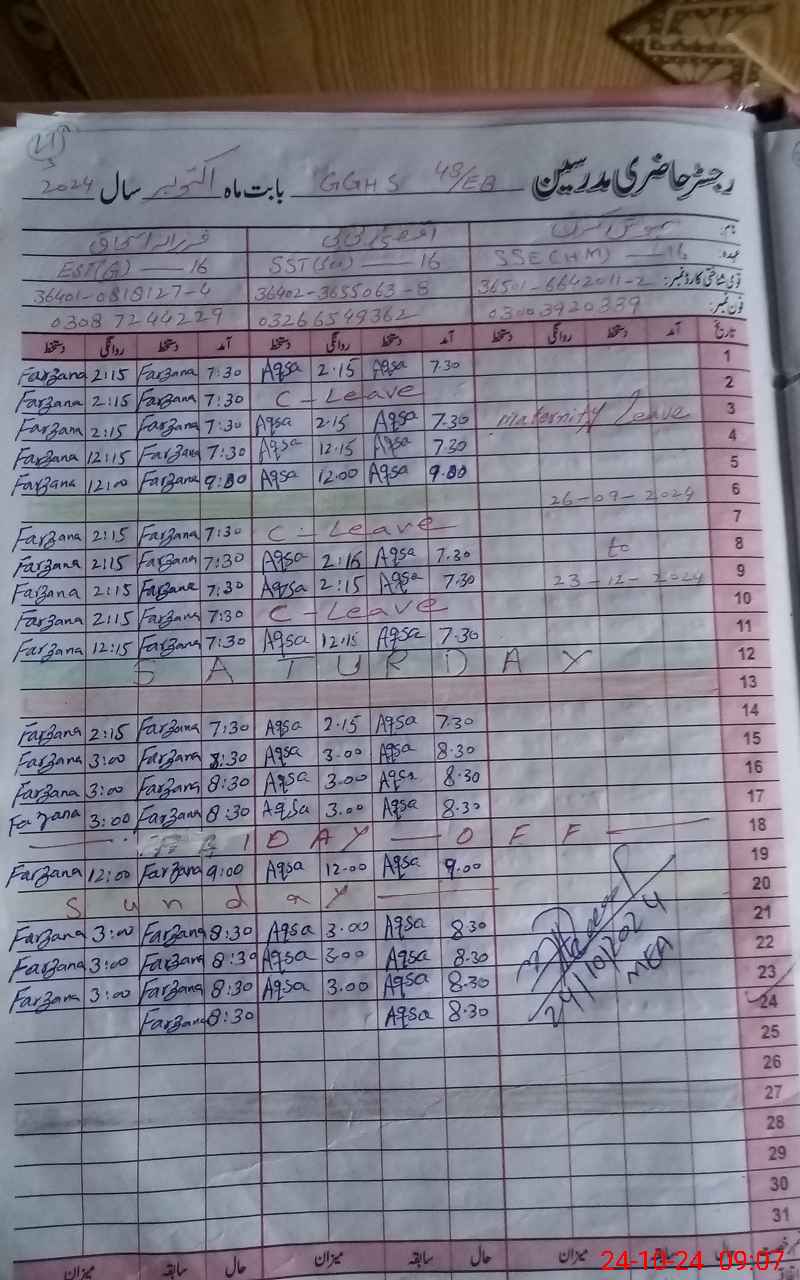 رجسٹر حاضری مدرسین GGHS 48/EB بابت ماہ اکتوبر سال 2024
نام:
عہدہ: SSE(HM) — 16 SST(Sci) — 16 EST(G) — 16
قومی شناختی کارڈ نمبر: 36501-6642011-2 36402-3655063-8 36401-0818127-4
فون نمبر: 03003920339 03266549362 03087244229
تاریخ آمد دستخط روانگی دستخط آمد دستخط روانگی دستخط آمد دستخط روانگی دستخط
Farzana 2:15 Farzana 7:30 Aqsa 2.15 Aqsa 7.30 1
Farzana 2:15 Farzana 7:30 C-Leave 2
Farzana 2:15 Farzana 7:30 Aqsa 2.15 Aqsa 7.30 Maternity Leave 3
Farzana 12:15 Farzana 7:30 Aqsa 12.15 Aqsa 7.30 4
Farzana 12:00 Farzana 9:00 Aqsa 12.00 Aqsa 9.00 5
26-09-2024 6
Farzana 2:15 Farzana 7:30 C-Leave 7
Farzana 2:15 Farzana 7:30 Aqsa 2:16 Aqsa 7.30 to 8
Farzana 2:15 Farzana 7:30 Aqsa 2:15 Aqsa 7.30 23-12-2024 9
Farzana 2:15 Farzana 7:30 C-Leave 10
Farzana 12:15 Farzana 7:30 Aqsa 12.15 Aqsa 7.30 11
SATURDAY 12
13
Farzana 2:15 Farzana 7:30 Aqsa 2.15 Aqsa 7.30 14
Farzana 3:00 Farzana 8:30 Aqsa 3.00 Aqsa 8.30 15
Farzana 3:00 Farzana 8:30 Aqsa 3.00 Aqsa 8.30 16
Farzana 3:00 Farzana 8:30 Aqsa 3.00 Aqsa 8.30 17
— FRIDAY — OFF — 18
Farzana 12:00 Farzana 9:00 Aqsa 12.00 Aqsa 9.00 19
Sunday — 20
Farzana 3:00 Farzana 8:30 Aqsa 3.00 Aqsa 8.30 21
Farzana 3:00 Farzana 8:30 Aqsa 3.00 Aqsa 8.30 22
Farzana 3:00 Farzana 8:30 Aqsa 3.00 Aqsa 8.30 23
Farzana 8:30 Aqsa 8.30 24
24/10/2024
MEA
25
26
27
28
29
30
31
حال سابقہ میزان حال سابقہ میزان حال سابقہ میزان
24-10-24 09:07